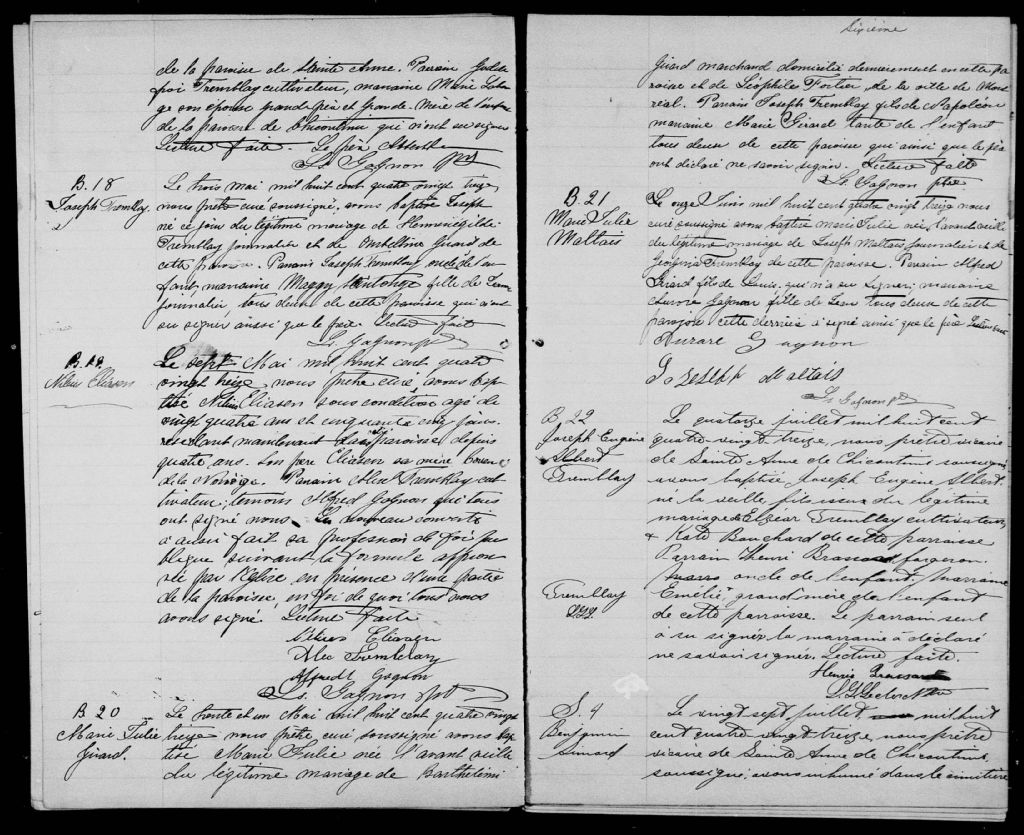 de la paroisse de Sainte Anne. Parrain Gode
froi Tremblay cultivateur, marraine Marie
son épouse grand-père et grande-mère de l'enfant
de la paroisse de Chicoutimi qui n'ont su signer
Lecture faite. Le père
Ls. Gagnon ptr
B. 18
Joseph Tremblay
Le trois mai mil huit cent quatre vingt treize
nous prêtre curé soussigné, avons baptisé Joseph
né ce jour du légitime mariage de Herménégilde
Tremblay journalier et de Girard de
cette paroisse. Parrain Joseph Tremblay oncle de l'en
fant, marraine Maggy fille de
journalier, tous deux de cette paroisse qui n'ont
su signer aussi que le père. Lecture faite
L. Gagnon ptr
B. 19
Eliasen
Le sept Mai mil huit cent quatre
vingt treize nous prêtre curé, avons bap
tisé Eliasen sous condition agé de
vingt quatre ans et cinquante cinq jours.
residant maintenant paroisse depuis
quatre ans. Son père Eliasen sa mère
de la Norvège. Parrain Alex Tremblay cul
tivateur; temoins Alfred Gagnon qui tous
ont signé nous. Le nouveau converti
a aussi fait sa profession de foi pu
blique suivant la formule approu
vée par l'Eglise, en présence d'une partie
de la paroisse, en foi de quoi tous nous
avons signé. Lecture faite
Eliasen
Alex Tremblay
Alfred Gagnon
Ls. Gagnon ptr
B. 20
Marie Julie
Girard.
Le trente et un Mai mil huit cent quatre vingt
treize nous prêtre curé soussigné avons bap
tisé Marie Julie née l'avant veille
du légitime mariage de Barthélémi
Sixième
Girard marchand domicilié dernierement en cette pa
roisse et de Léophile Fortier de la ville de Mont
réal. Parrain Joseph Tremblay fils de Napoléon
marraine Marie Girard tante de l'enfant
tous deux de cette paroisse qui ainsi que le père
ont déclaré ne savoir signer. Lecture faite
Ls. Gagnon ptre
B. 21
Marie Julie
Maltais
Le onze Juin mil huit cent quatre vingt treize nous
curé soussigné avons baptisé Marie Julie née l'avant veille
du légitime mariage de Joseph Maltais journalier et de
Georgina Tremblay de cette paroisse. Parrain Alfred
Girard fils de Louis. qui n'a su signer; marraine
Aurore Gagnon fille de tous deux de cette
paroisse cette dernière a signé ainsi que le père Lecture faite
Aurore Gagnon
Joseph Maltais
Ls. Gagnon ptr
B. 22
Joseph Eugène
Albert
Tremblay
Le quatorze juillet mil huit cent
quatre-vingt treize, nous prêtre vicaire
de Sainte Anne de Chicoutimi soussigné
avons baptisé Joseph Eugène Albert.
né la veille, fils issu du légitime
mariage d'Elzéar Tremblay cultivateur,
& Kate Bouchard de cette parroisse
Parrain Henri Brassard forgeron
oncle de l'enfant. marraine
Emélie, grand'mère de l'enfant
de cette parroisse. Le parrain seul
a su signer, la marraine a déclaré
ne savoir signer. Lecture faite.
Tremblay
Henri Brassard
S. 4
Benjamin
Simard
Le vingt sept juillet mil huit
cent quatre vingt treize, nous prêtre
vicaire de Sainte Anne de Chicoutimi,
soussigné; avons inhumé dans le cimetière